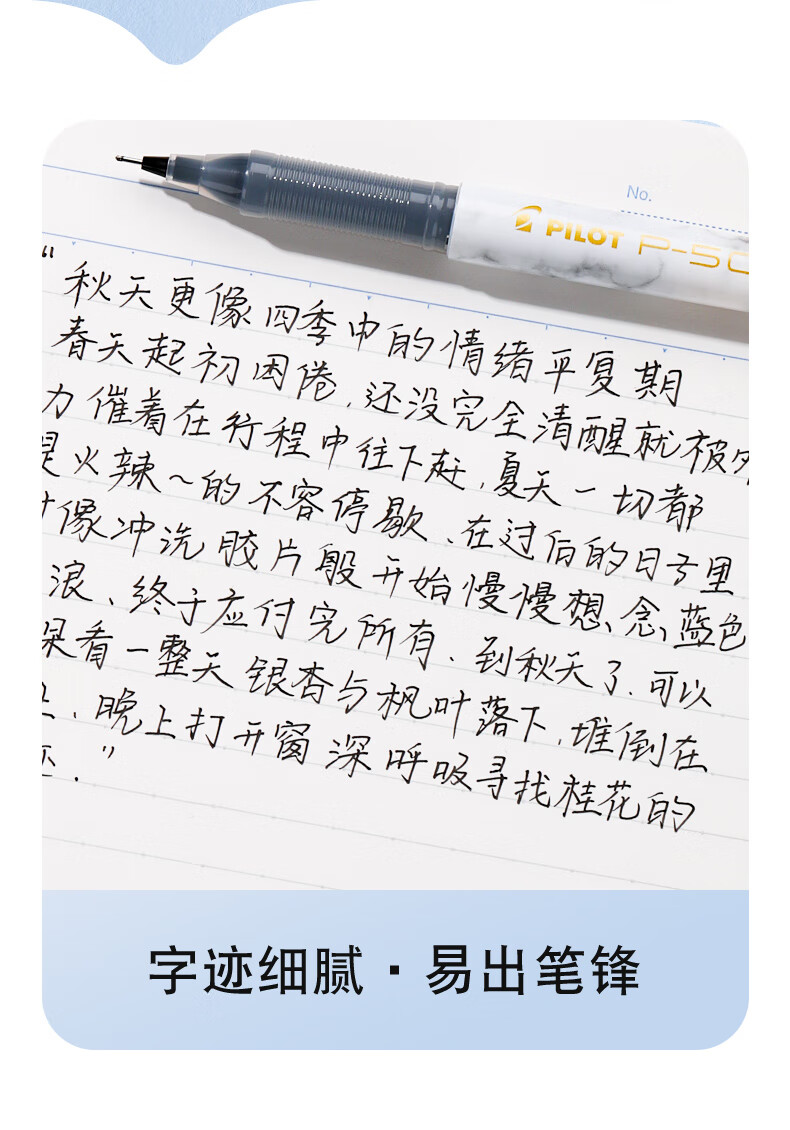 No.
PILOT P-50
“秋天更像四季中的情绪平复期
春天起初困倦,还没完全清醒就被外
力催着在行程中往下赶,夏天一切都
是火辣~的不容停歇、在过后的日子里
像冲洗胶片般开始慢慢想、念、蓝色
浪、终于应付完所有.到秋天了.可以
果看一整天银杏与枫叶落下,堆倒在
.晚上打开窗深呼吸寻找桂花的
.”
字迹细腻·易出笔锋